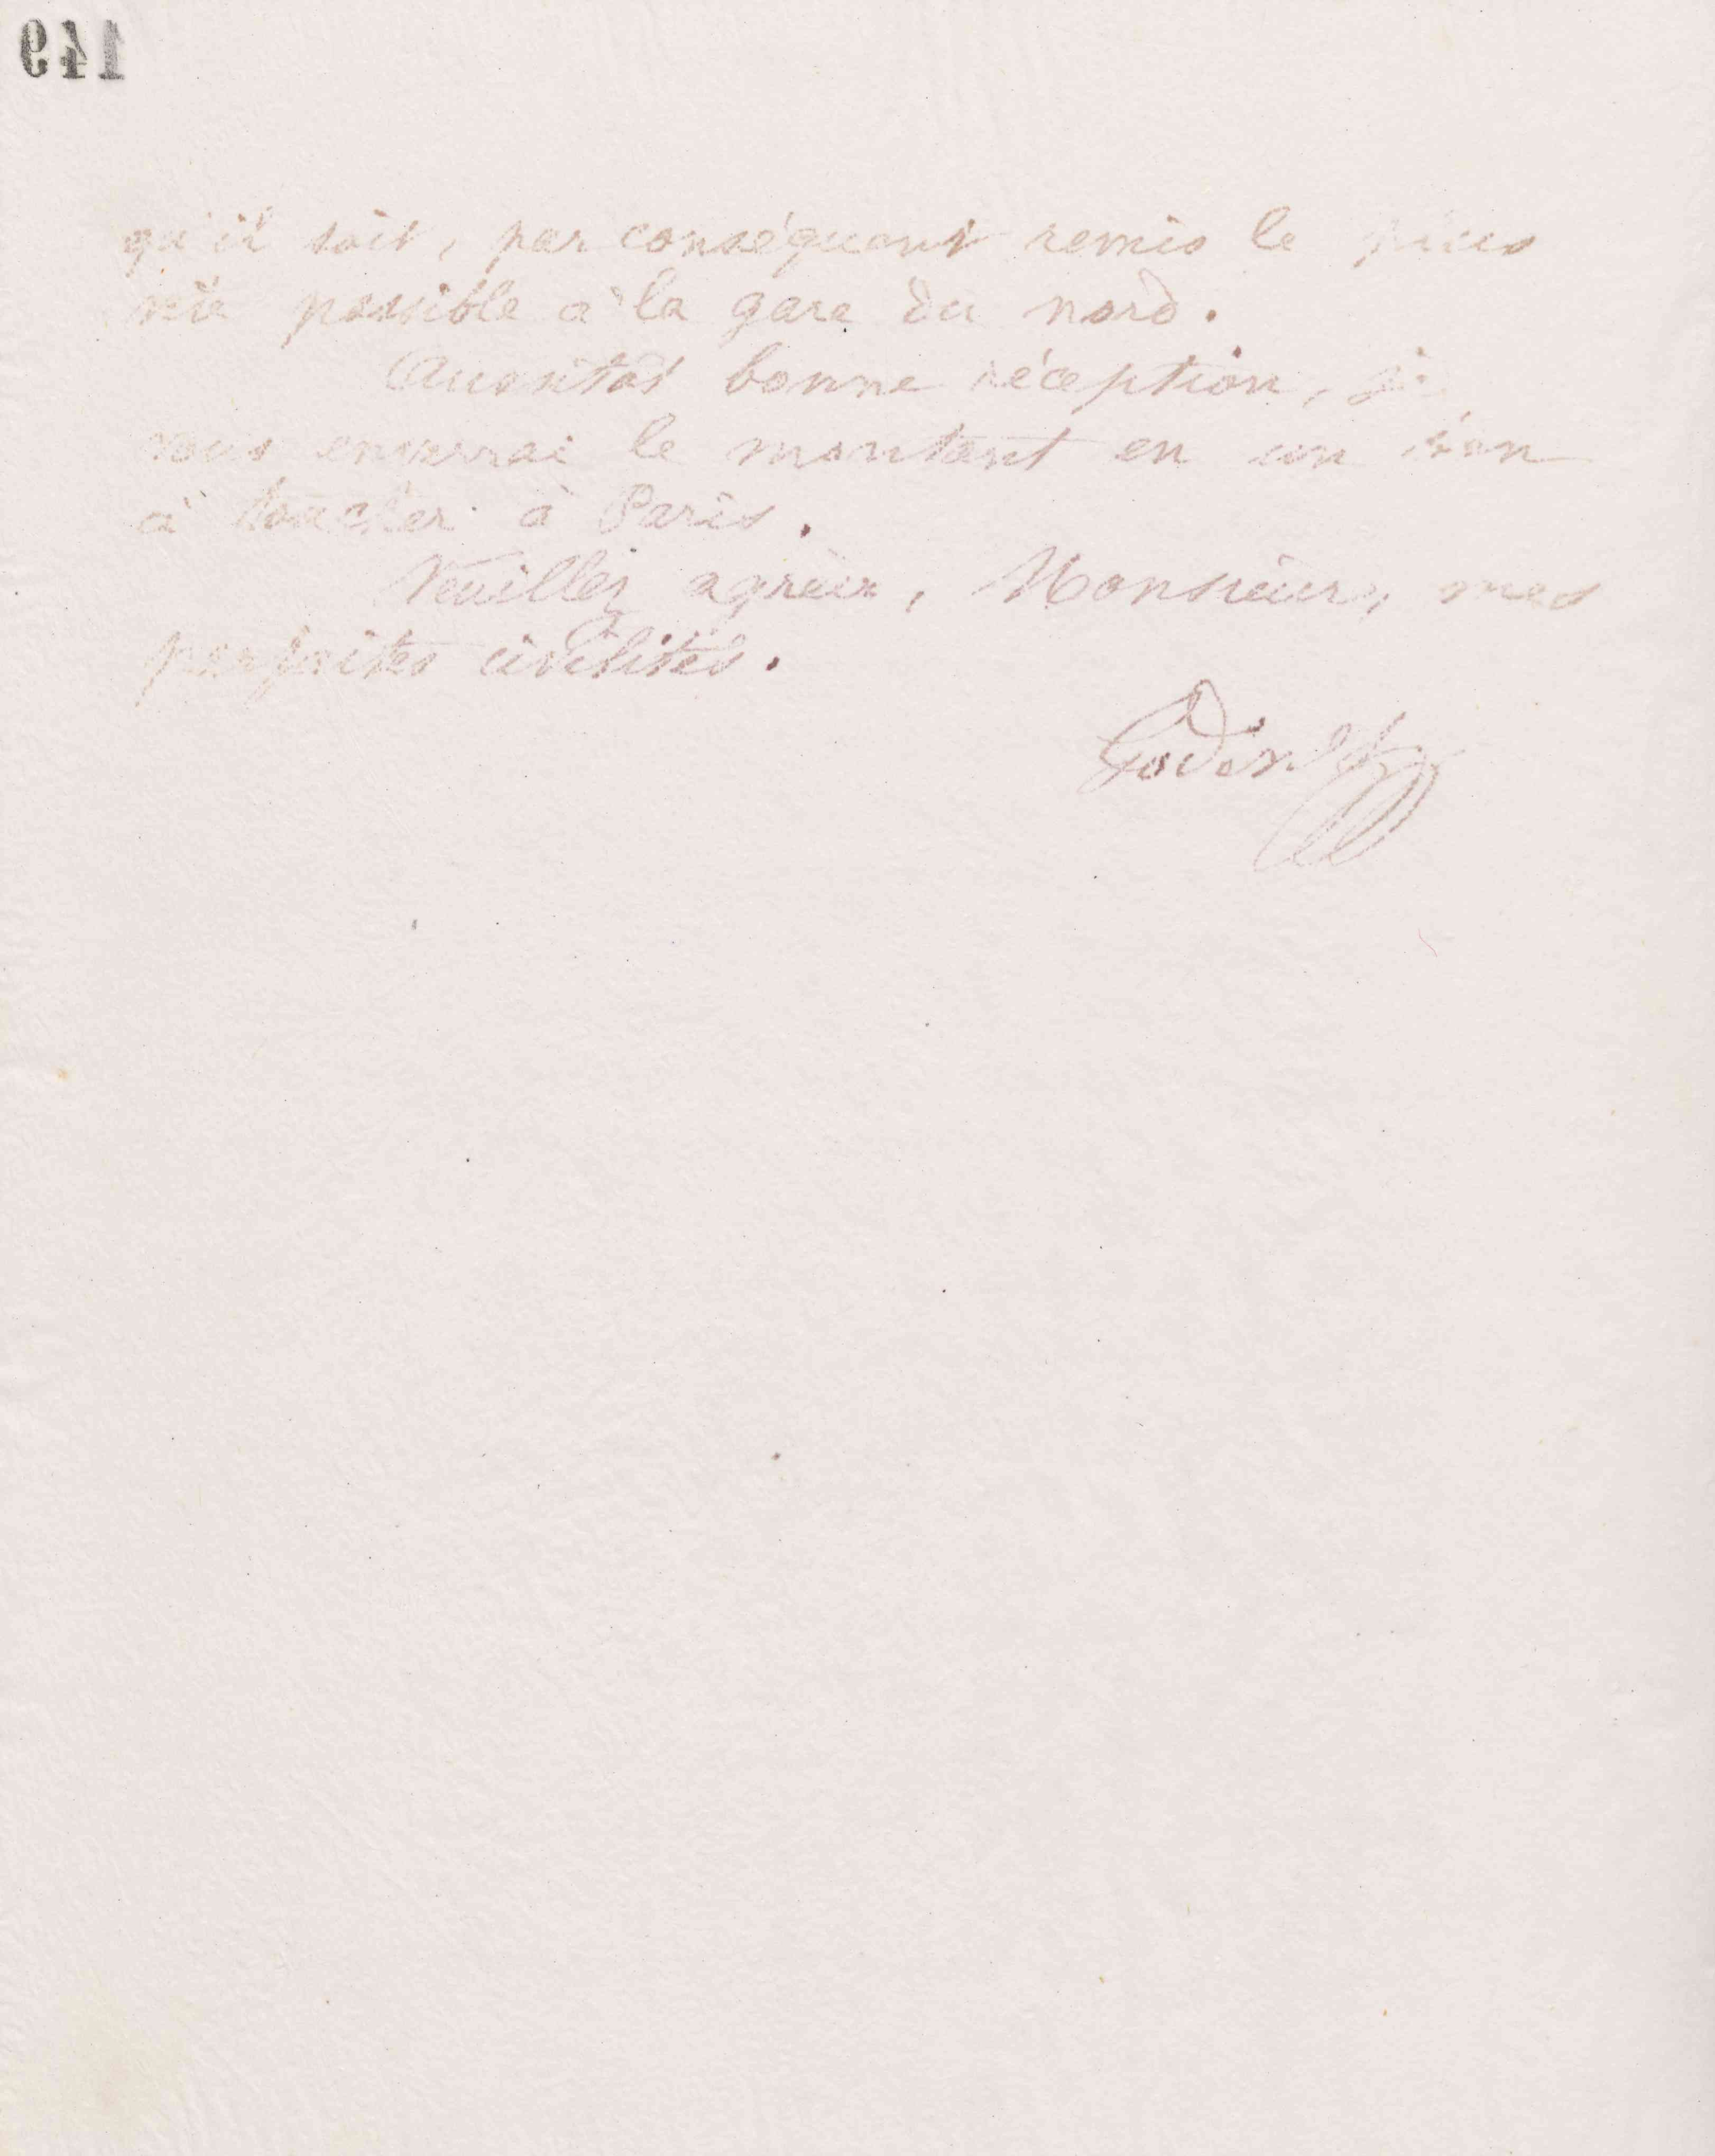 149
qu'il soit, par conséquent remis le plus
vite possible à la gare du nord.
Aussitôt bonne réception, je
vous enverrai le montant en un bon
à toucher à Paris.
Veuillez agréer, Monsieur, mes
parfaites civilités.
Godin